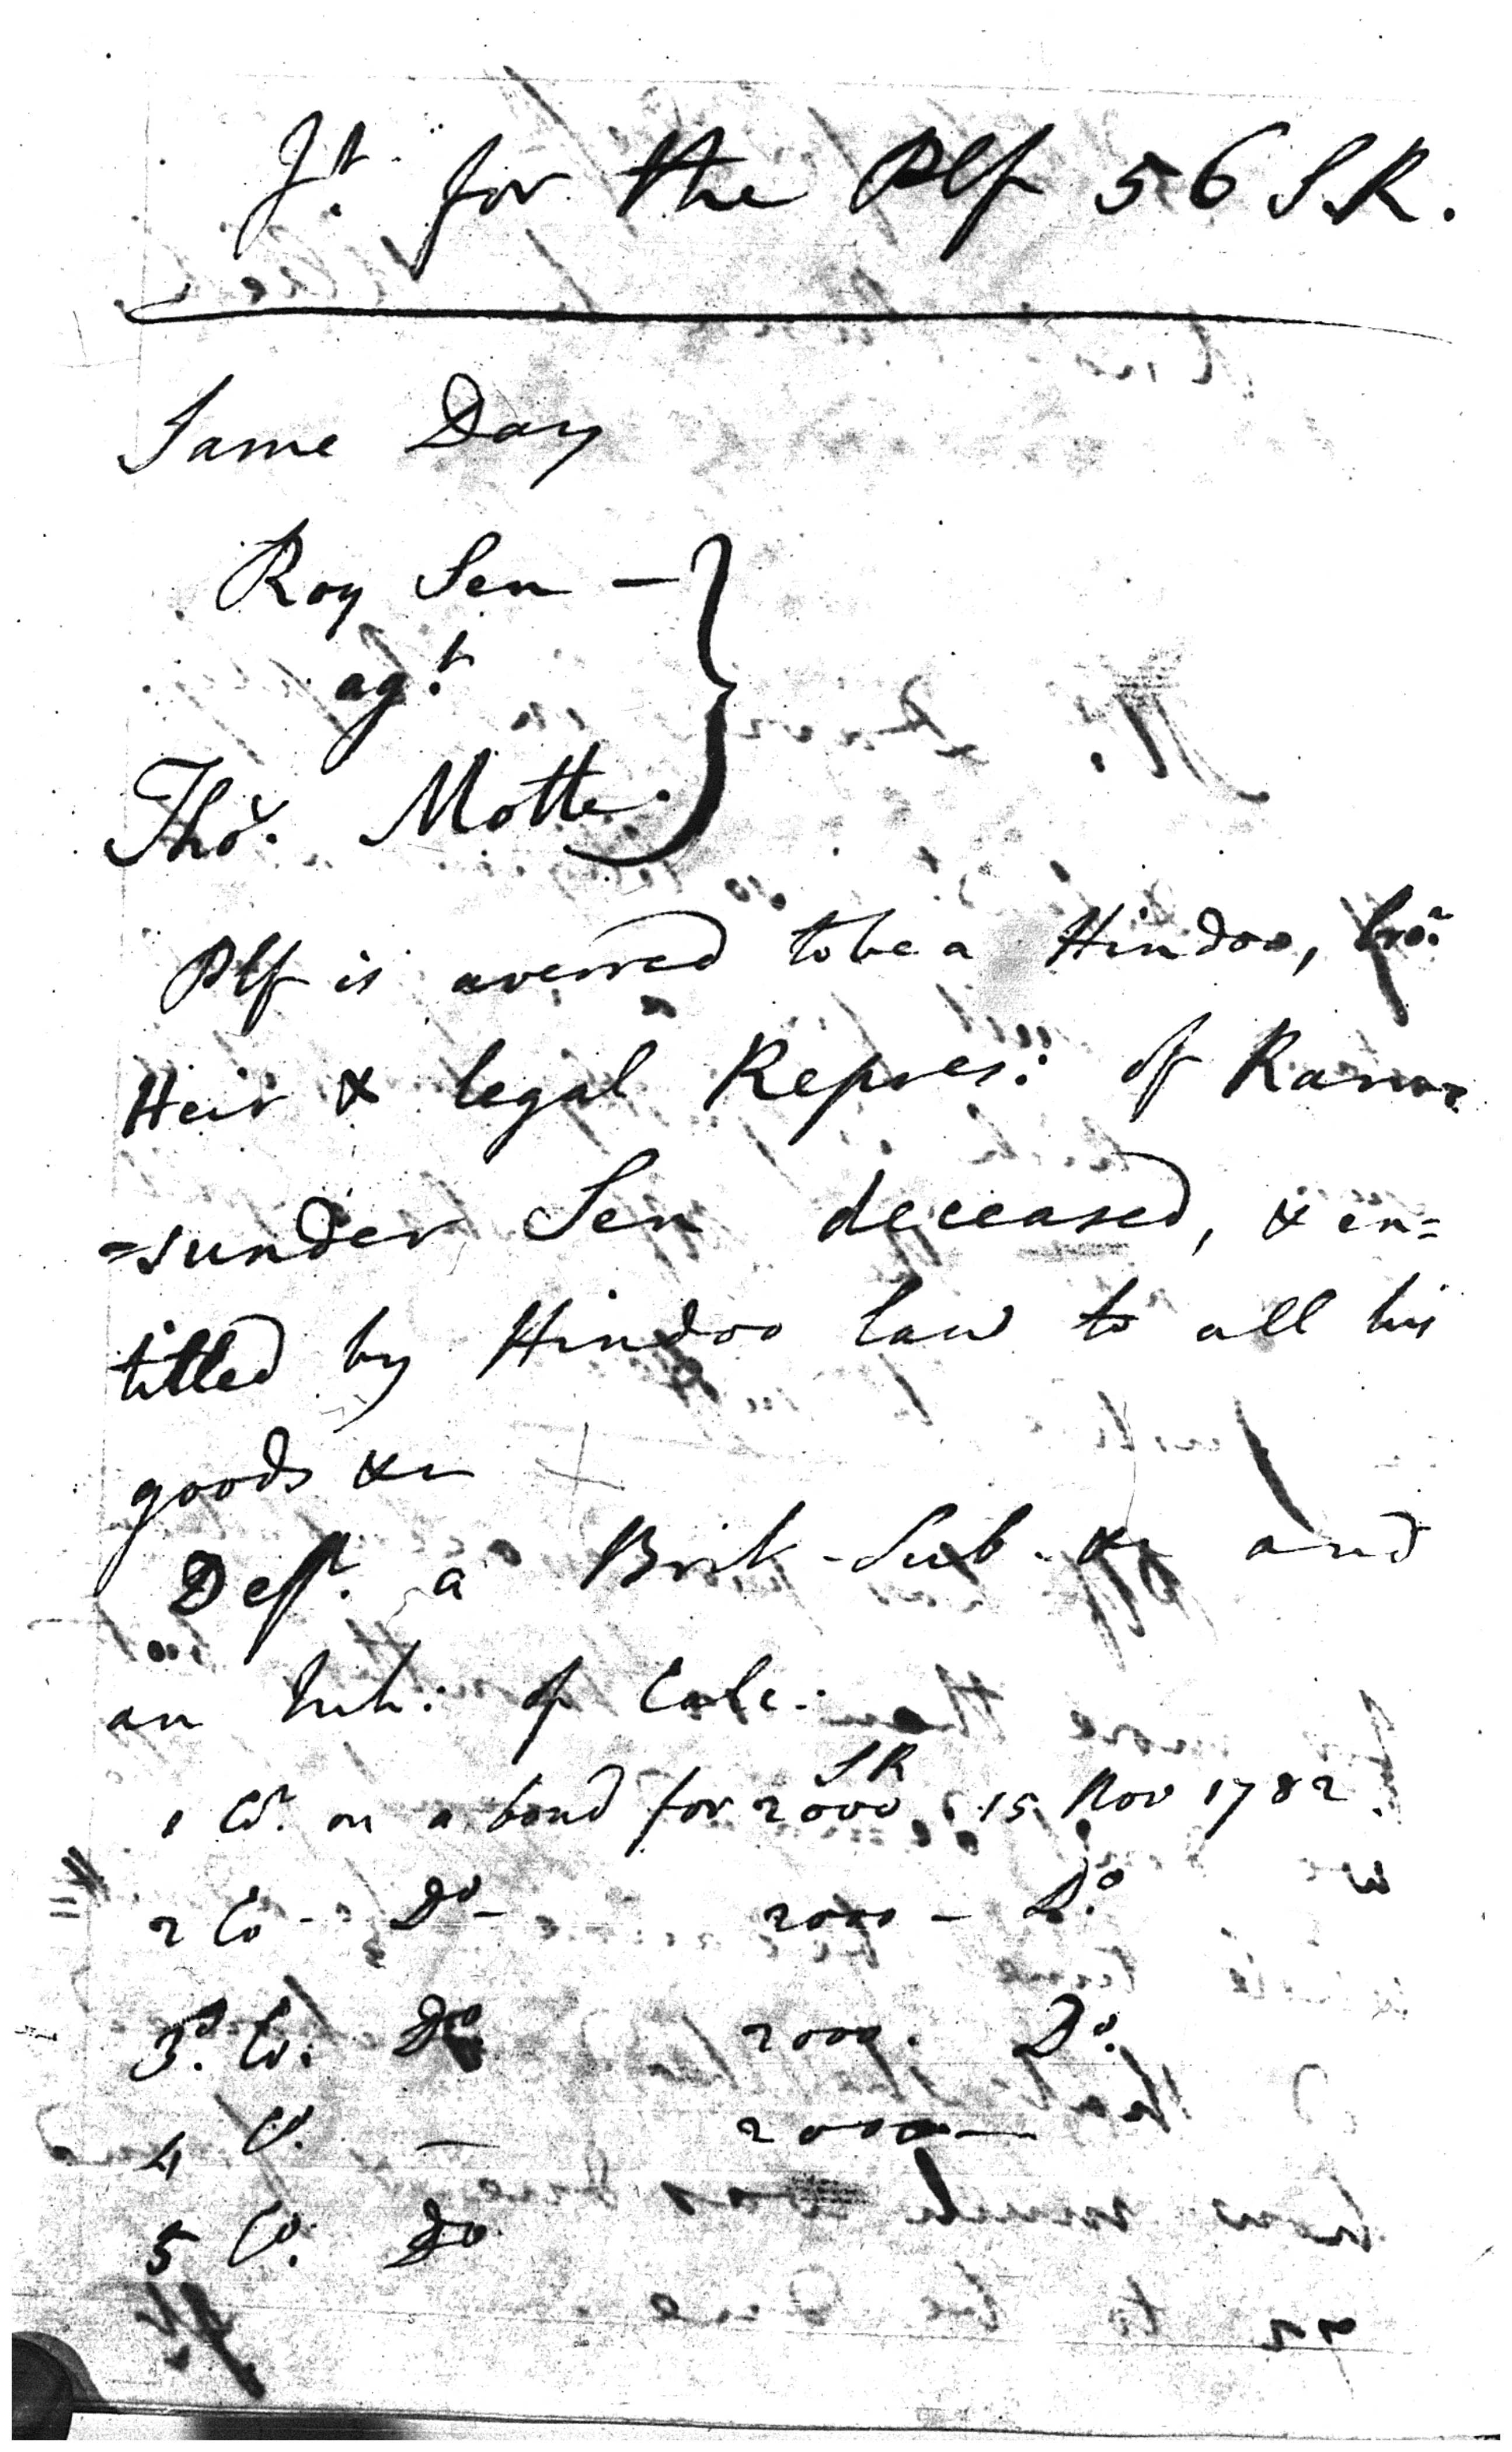 Jt. for the Plf 56 S.R.
Same Day
Roy Sen —
agt.
Thos. Motte.
Plf is averred to be a Hindoo, bror.
Heir & legal Repres: of Ram
=sunder Sen deceased, & en=
titled by Hindoo law to all his
goods &c
Deft. a Brit. Sub. &c and
an Inh: of Calc:
1 Ct. on a bond for 2000 SR, 15 Nov 1782.
2 Co - Do - 2000 - Do.
3d. Co. Do 2000. Do.
4 Co. — 2000 —
5 Co. Do